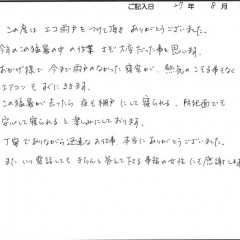 ご記入日 27年 8月
この度は エコ雨戸をつけて頂き ありがとうございました。
今年の猛暑の中の作業 とても大変だった事と思います。
おかげ様で 今まで雨戸のなかった寝室が、熱気のこもる事もなく
エアコンも すぐにききます。
この猛暑が去ったら 夜も網戸にして寝られる、防犯面でも
安心して寝られると 楽しみにしております。
丁寧でありながら迅速なお仕事、本当にありがとうございました。
また いつ電話しても きちんと答えて下さる事務の女性にも感謝します